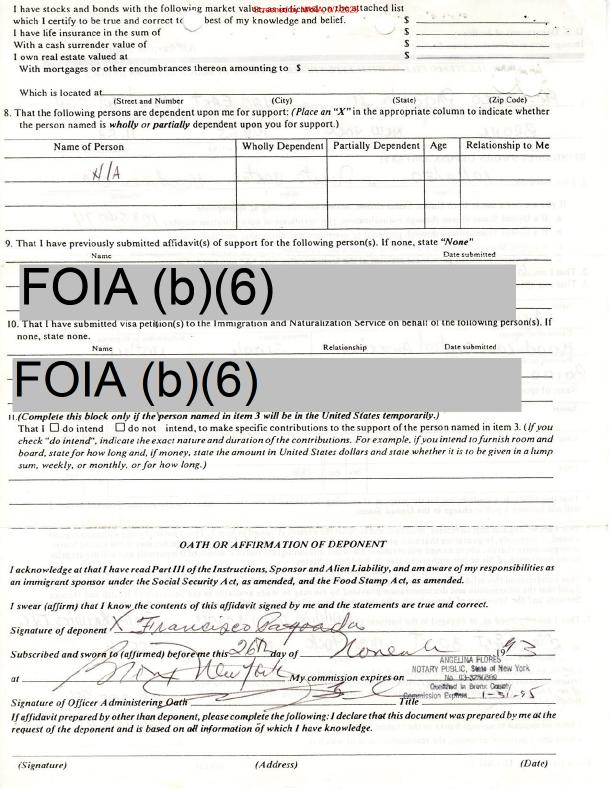 I have stocks and bonds with the following market value, as indicated on the attached list
which I certify to be true and correct to best of my knowledge and belief. $
I have life insurance in the sum of $
With a cash surrender value of $
I own real estate valued at $
With mortgages or other encumbrances thereon amounting to $
Which is located at
(Street and Number) (City) (State) (Zip Code)
8. That the following persons are dependent upon me for support: (Place an "X" in the appropriate column to indicate whether
the person named is wholly or partially dependent upon you for support.)
Name of Person Wholly Dependent Partially Dependent Age Relationship to Me
N/A
9. That I have previously submitted affidavit(s) of support for the following person(s). If none, state "None"
Name Date submitted
FOIA (b)(6)
10. That I have submitted visa petition(s) to the Immigration and Naturalization Service on behalf of the following person(s). If
none, state none.
Name Relationship Date submitted
FOIA (b)(6)
11.(Complete this block only if the person named in item 3 will be in the United States temporarily.)
That I ☐ do intend ☐ do not intend, to make specific contributions to the support of the person named in item 3. (If you
check "do intend", indicate the exact nature and duration of the contributions. For example, if you intend to furnish room and
board, state for how long and, if money, state the amount in United States dollars and state whether it is to be given in a lump
sum, weekly, or monthly, or for how long.)
OATH OR AFFIRMATION OF DEPONENT
I acknowledge at that I have read Part III of the Instructions, Sponsor and Alien Liability, and am aware of my responsibilities as
an immigrant sponsor under the Social Security Act, as amended, and the Food Stamp Act, as amended.
I swear (affirm) that I know the contents of this affidavit signed by me and the statements are true and correct.
Signature of deponent X Francisco
Subscribed and sworn to (affirmed) before me this 26th day of 1993
at Bronx New York My commission expires on
ANGELINA FLORES
NOTARY PUBLIC, State of New York
No.
Qualified in Bronx County
Commission Expires 1-31-95
Signature of Officer Administering Oath Title
If affidavit prepared by other than deponent, please complete the following: I declare that this document was prepared by me at the
request of the deponent and is based on all information of which I have knowledge.
(Signature) (Address) (Date)